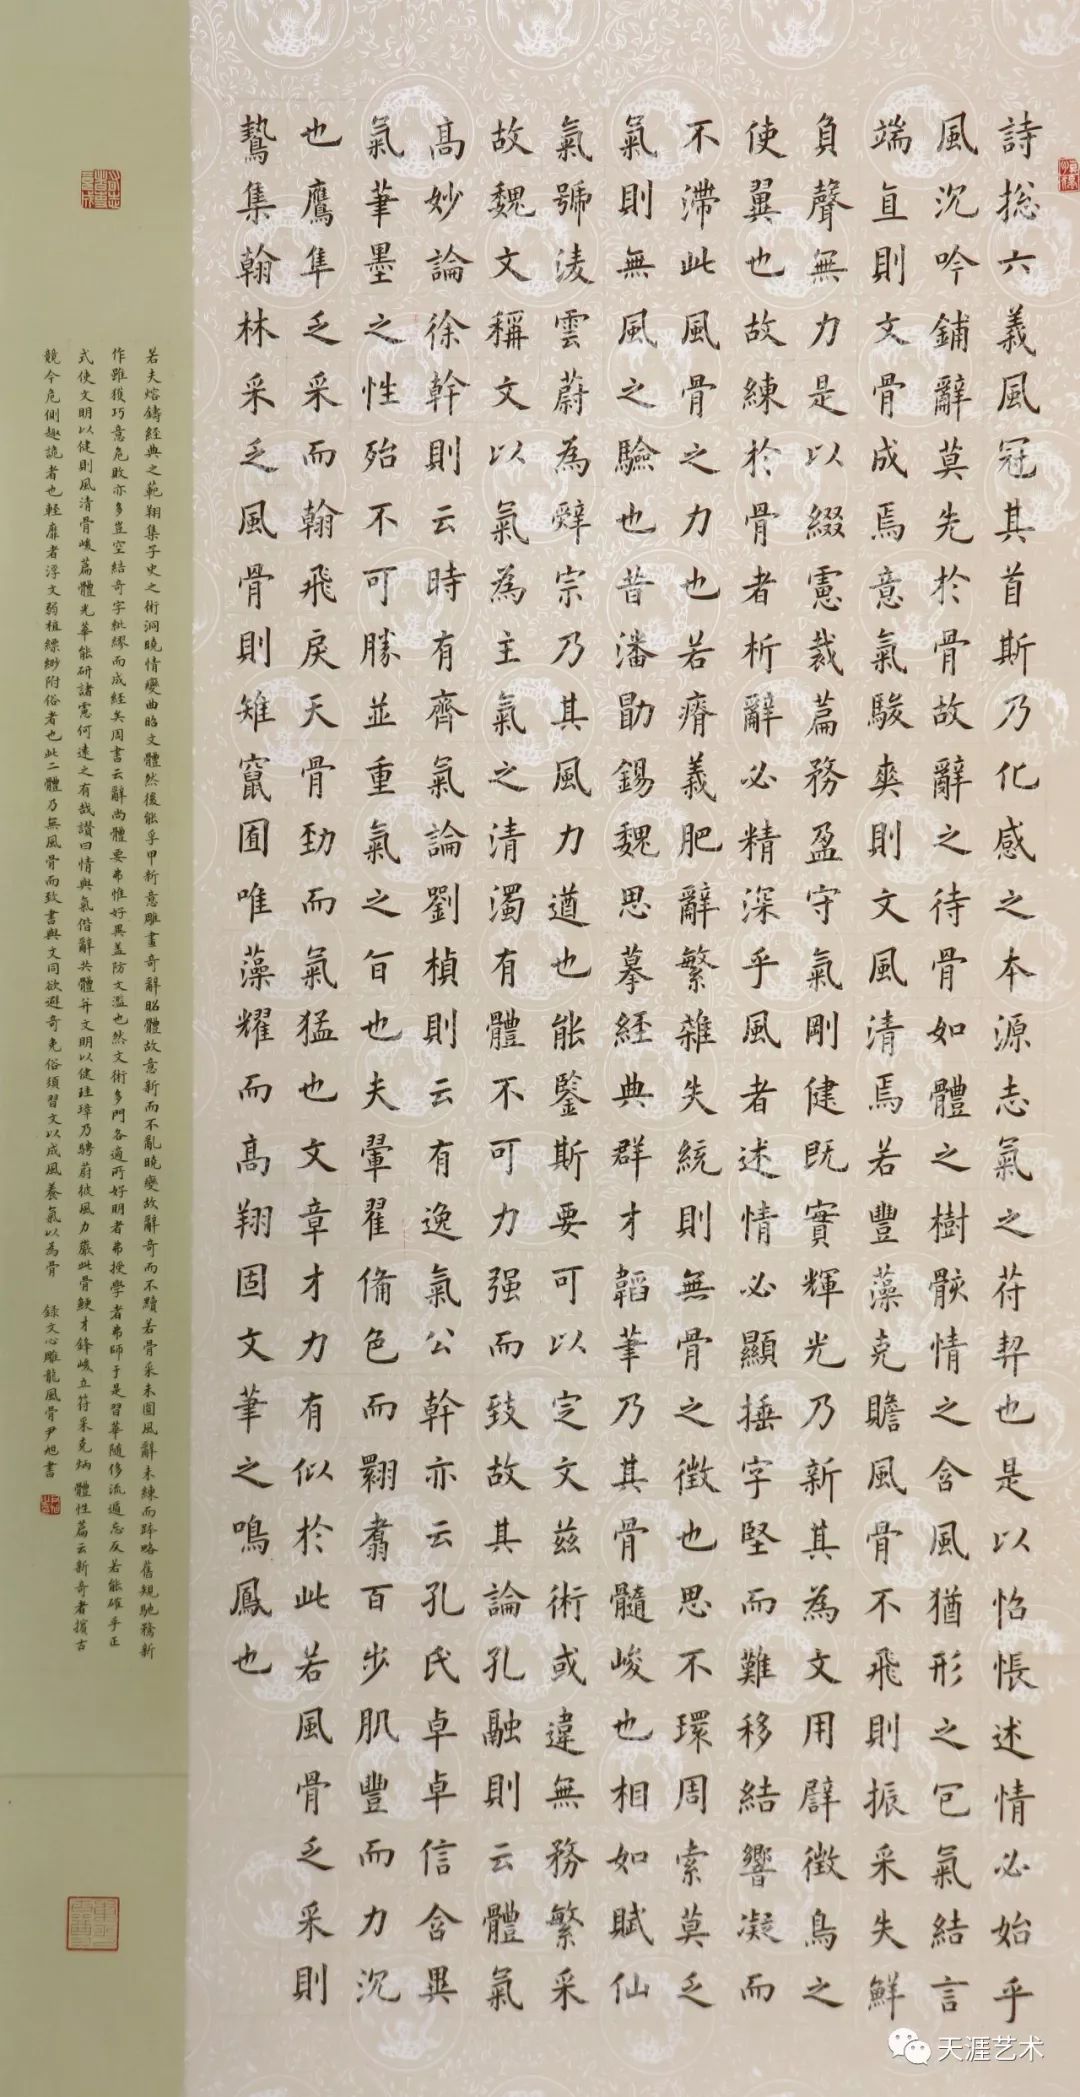 詩揔六義風冠其首斯乃化感之本源志氣之苻契也是以怊悵述情必始乎
風沉吟鋪辭莫先於骨故辭之待骨如體之樹骸情之含風猶形之包氣結言
端直則文骨成焉意氣駿爽則文風清焉若豐藻克贍風骨不飛則振采失鮮
負聲無力是以綴慮裁篇務盈守氣剛健既實輝光乃新其為文用譬徵鳥之
使翼也故練於骨者析辭必精深乎風者述情必顯捶字堅而難移結響凝而
不滯此風骨之力也若瘠義肥辭繁雜失統則無骨之徵也思不環周索莫乏
氣則無風之驗也昔潘勖錫魏思摹經典群才韜筆乃其骨髓峻也相如賦仙
氣號淩雲蔚為辭宗乃其風力遒也能鑒斯要可以定文茲術或違無務繁采
故魏文稱文以氣為主氣之清濁有體不可力强而致故其論孔融則云體氣
高妙論徐幹則云時有齊氣論劉楨則云有逸氣公幹亦云孔氏卓卓信含異
氣筆墨之性殆不可勝並重氣之旨也夫翬翟備色而翾翥百步肌豐而力沉
也鷹隼乏采而翰飛戾天骨勁而氣猛也文章才力有似於此若風骨乏采則
鷙集翰林采乏風骨則雉竄囿唯藻耀而高翔固文筆之鳴鳳也
若夫熔鑄經典之範翔集子史之術洞曉情變曲昭文體然後能孚甲新意雕畫奇辭昭體故意新而不亂曉變故辭奇而不黷若骨采未圓風辭未練而跨略舊規馳騖新
作雖獲巧意危敗亦多豈空結奇字紕繆而成經矣周書云辭尚體要弗惟好異蓋防文濫也然文術多門各適所好明者弗授學者弗師于是習華隨侈流遁忘反若能確乎正
式使文明以健則風清骨峻篇體光華能研諸慮何遠之有哉讚曰情與氣偕辭共體并文明以健珪璋乃騁蔚彼風力嚴此骨鯁才鋒峻立符采克炳 體性篇云新奇者擯古
競今危側趣詭者也輕靡者浮文弱植縹緲附俗者也此二體乃無風骨而致書與文同欲避奇免俗須習文以成風養氣以為骨 錄文心雕龍風骨尹旭書
天涯艺术